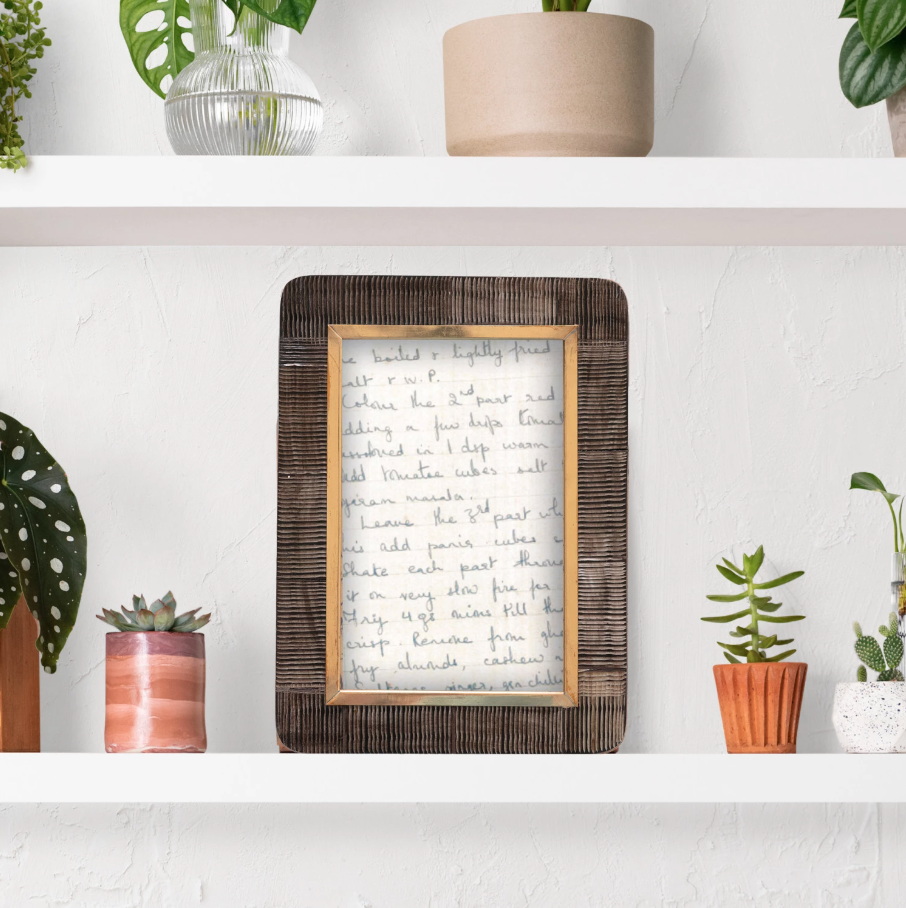 e boiled & lightly fried
alt & W.P.
Colour the 2nd part red
dding a few drops tomat
ssolved in 1 dsp warm
add tomatoe cubes salt
garam masala.
Leave the 3rd part wh
his add panir cubes
Shake each part throu
it on very slow fire for
Fry 4 gs mims till th
crisp. Remove from ghe
fry almonds, cashew n
ginger, gen chillie